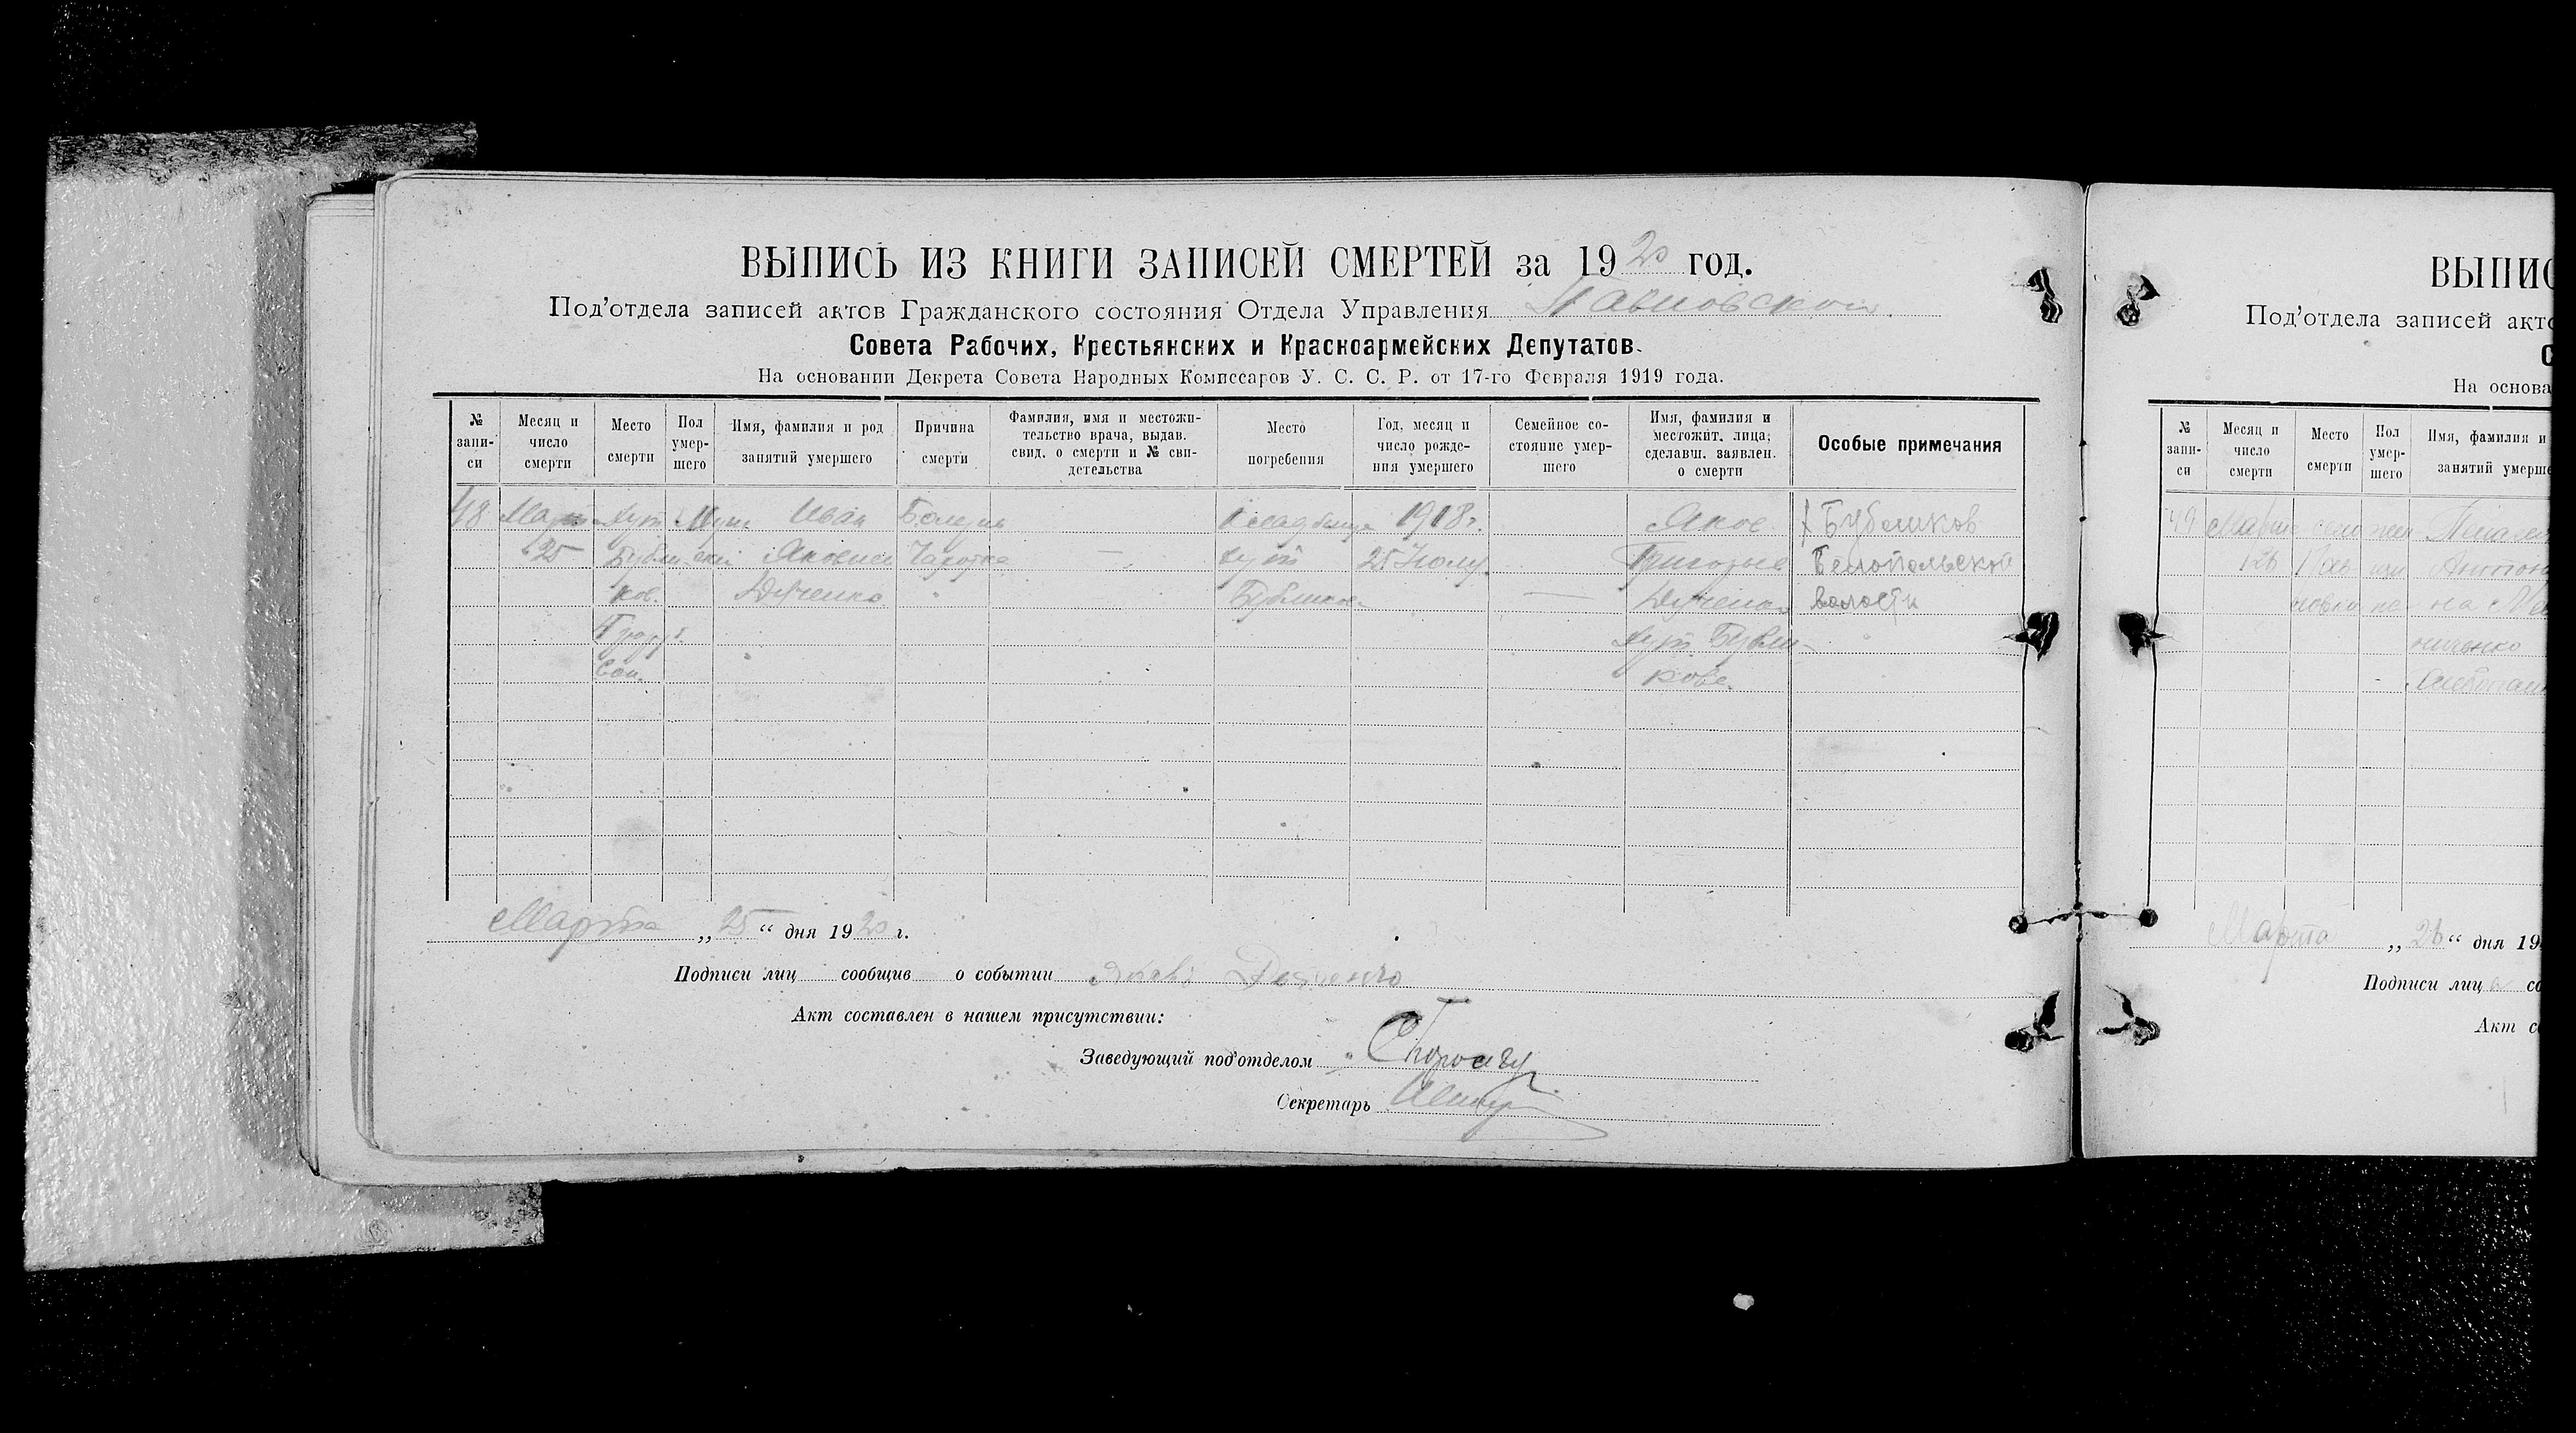 ВЫПИСЬ ИЗ КНИГИ ЗАПИСЕЙ СМЕРТЕЙ за 1920 год.
Под'отдела записей актов Гражданского состояния Отдела Управления Павловской
Совета Рабочих, Крестьянских и Красноармейских Депутатов.
На основании Декрета Совета Народных Комиссаров У. С. С. Р. от 17-го Февраля 1919 года.
№ запи-
си
Месяц и
число
смерти
Место
смерти
Пол
умер-
шего
Имя, фамилия и род
занятий умершего
Причина
смерти
Фамилия, имя и местожи-
тельство врача, выдав.
свид. о смерти и № сви-
детельства
Место
погребения
Год, месяц и
число рожде-
ния умершего
Семейное со-
стояние умер-
шего
Имя, фамилия и
местожит. лица,
сделавш. заявлен.
о смерти
Особые примечания
48
Март
25
Хут
Бубли
ков.
Муж
ской
Иван
Яковлев
Дяченко
Болезнь
Чахотка
Кладбище
хут
Бубликов
1918 г.
25 Июля
Яков
Григорьев
Дяченко
Хут Бубли-
ков
Бубликов
Белопольской
волости
Марта „ 25 “ дня 1920 г.
Подписи лиц сообщив о событии Яков Дяченко
Акт составлен в нашем присутствии:
Заведующий под'отделом
Секретарь
ВЫПИС
Под'отдела записей акто
С
На основа
№
запи-
си
Месяц и
число
смерти
Место
смерти
Пол
умер-
шего
Имя, фамилия и
занятий умерше
49
Марта
26
село
Пав
ловка
жен
Антон
на
Марта „ 26 “ дня 19
Подписи лица со
Акт с